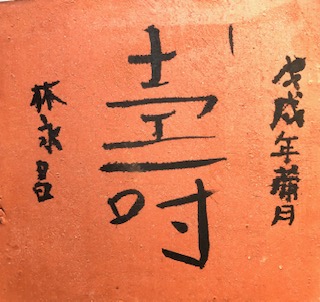 戊戌年蒲月
壽
林永昌